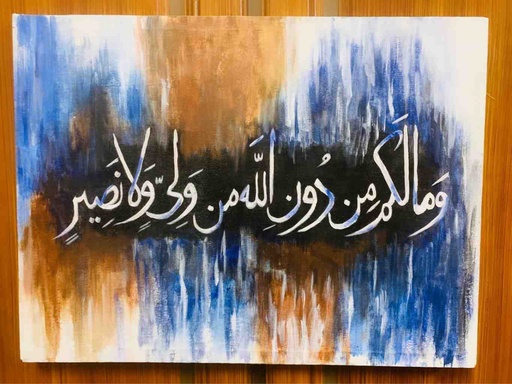 وَمَا لَكُم مِن دُونِ اللَّه مِن وَلِيٍّ وَلَا نَصِيرٍ